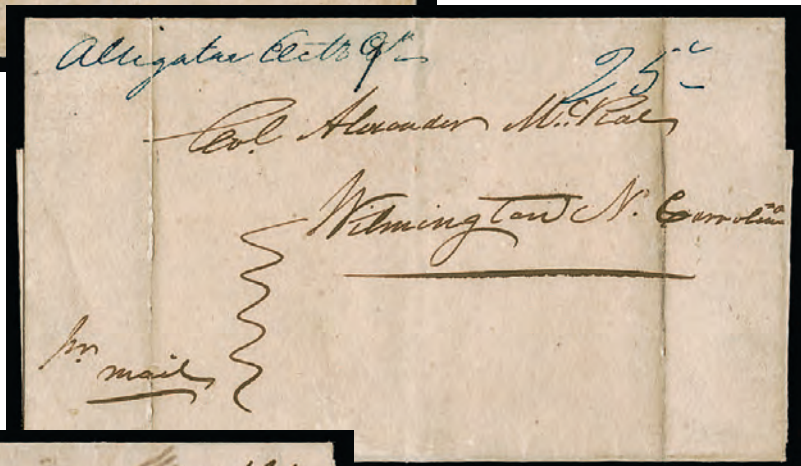 Alligator Octo 9th
25c
Col Alexander McRae
Wilmington N. Carrolina
pr mail